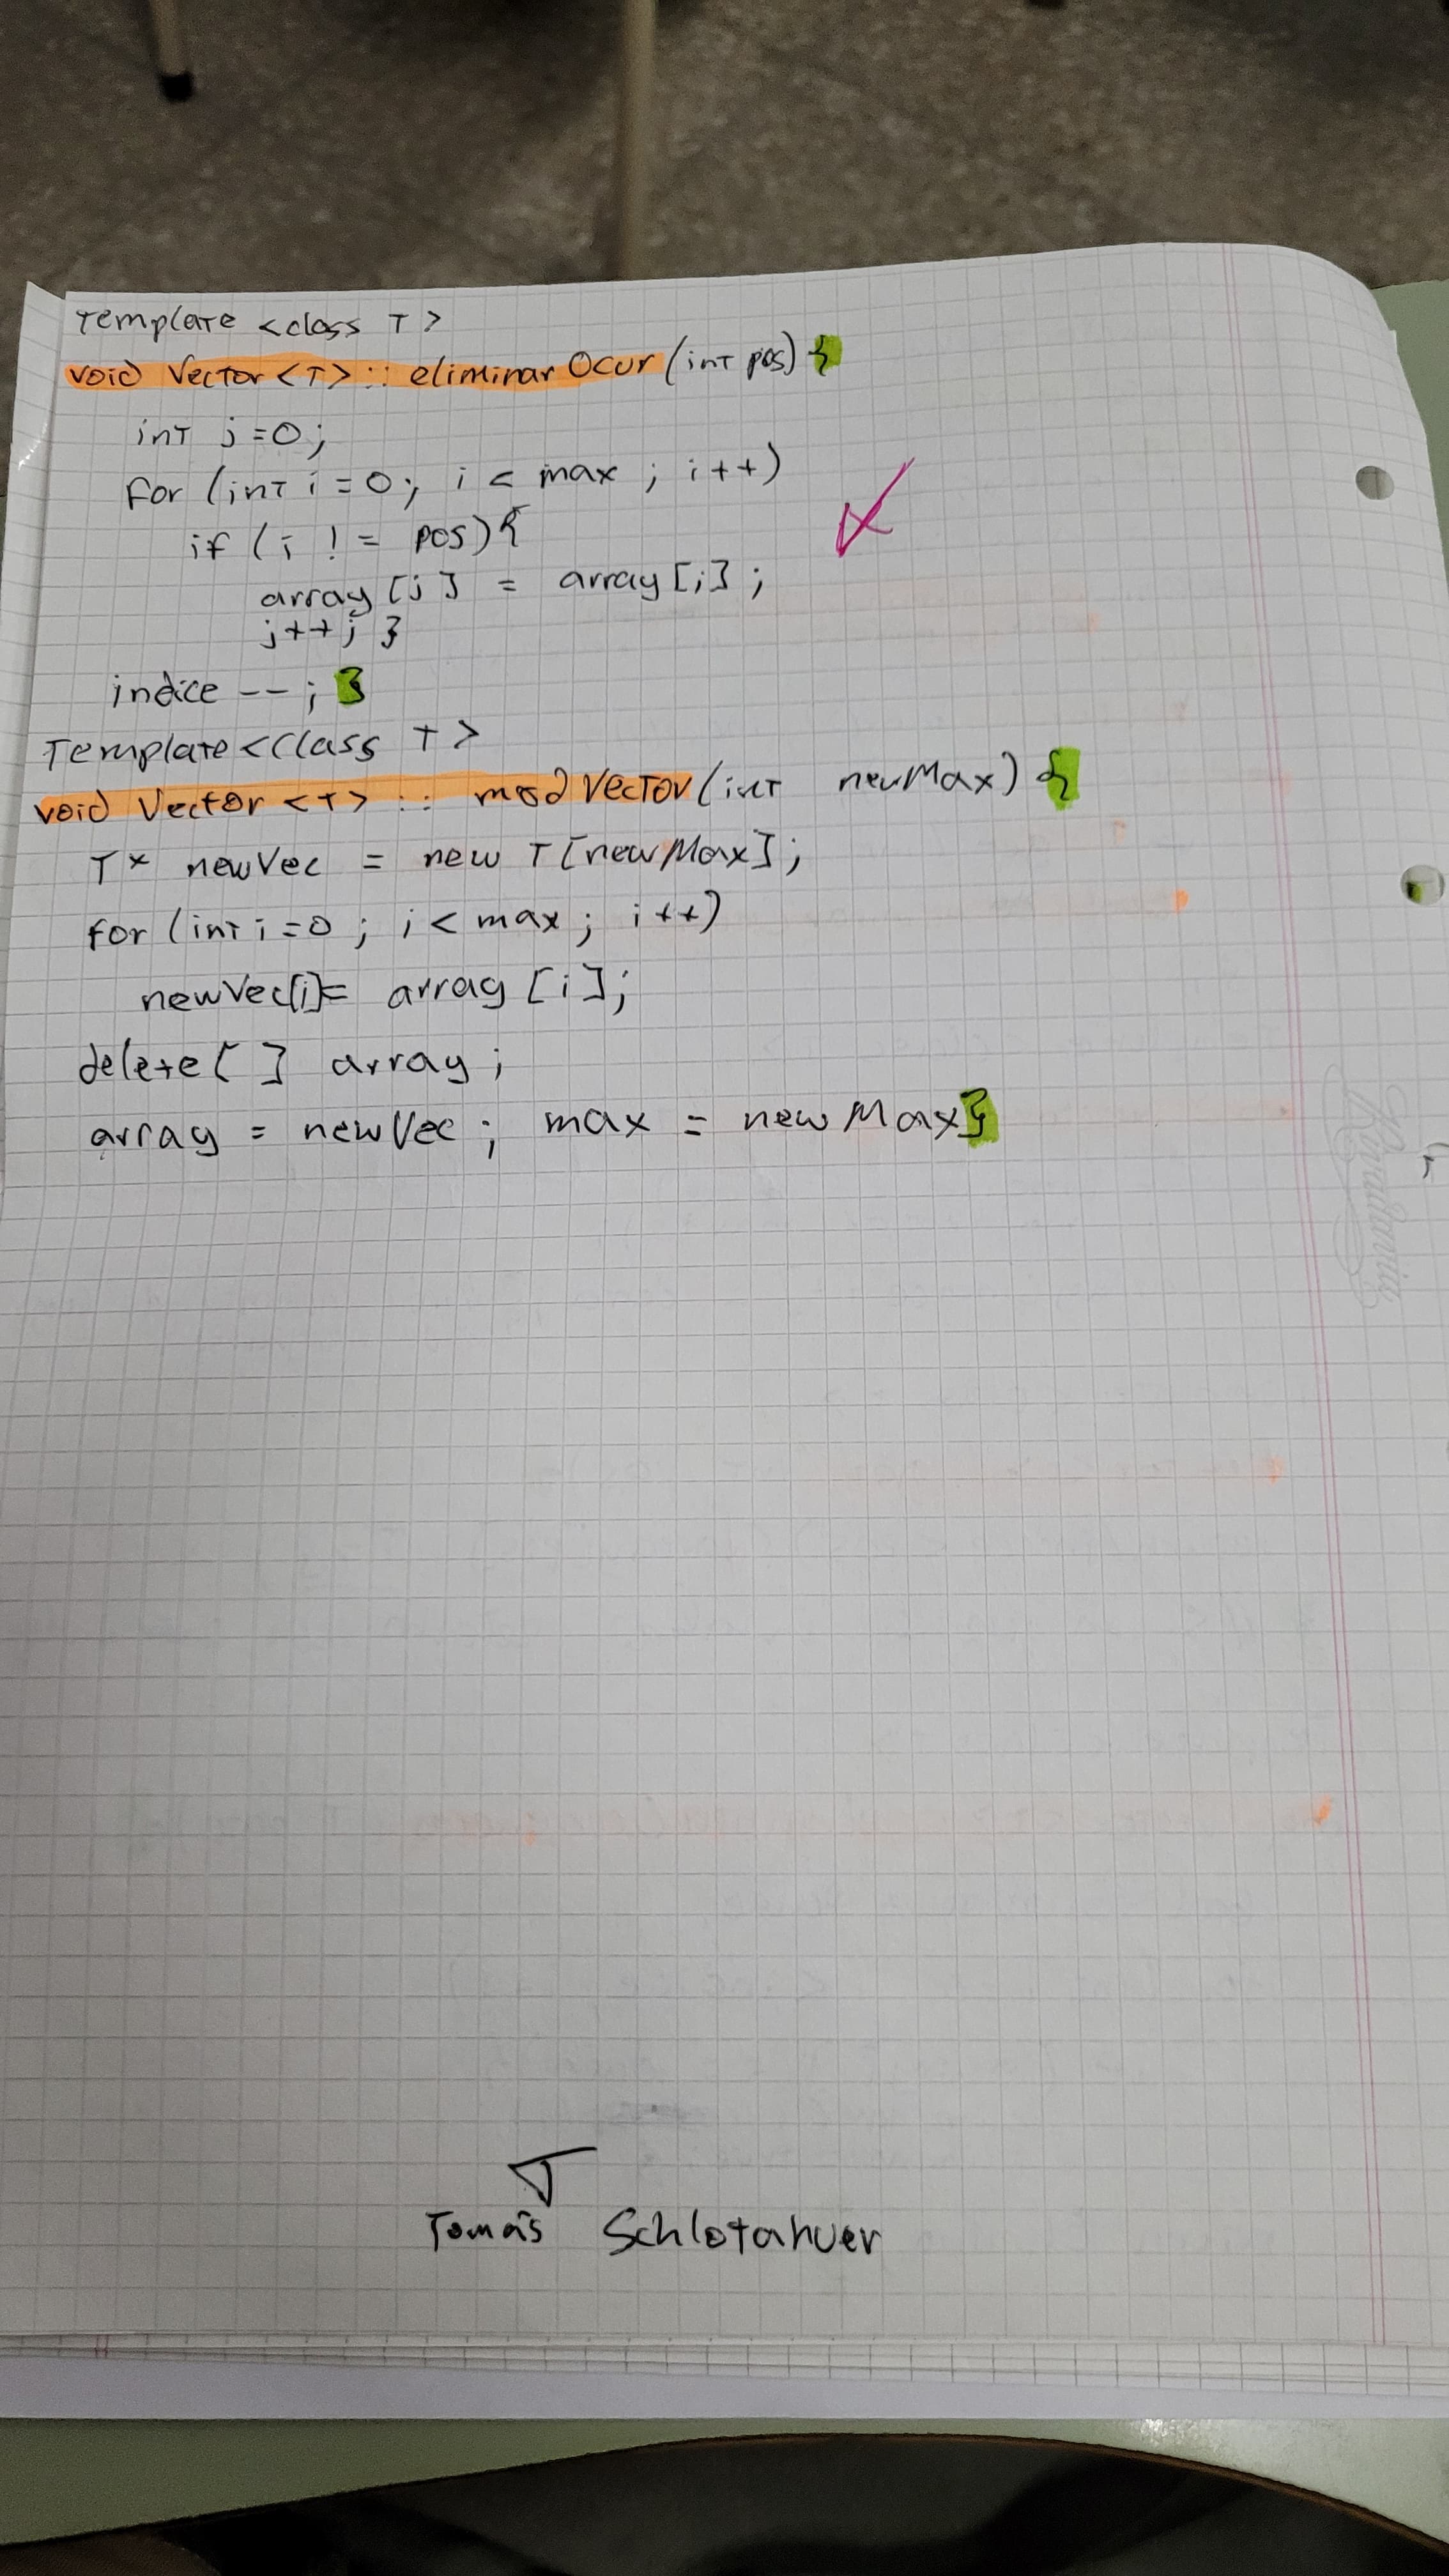 Template <class T>
void Vector<T>:: eliminar Ocur (int pos) {
int j=0;
for (int i=0; i < max ; i++)
if (i != pos){
array [j] = array [i] ;
j++; }
indice --; }
Template <Class T>
void Vector <T> :: modVector (int newMax) {
T* newVec = new T[newMax];
for (int i=0 ; i < max ; i++)
newVec[i]= array [i];
delete[ ] array ;
array = newVec ; max = newMax}
Tomás Schlotahuer